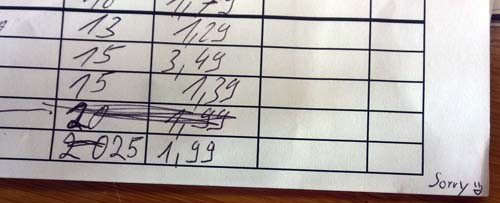 10 1,79
13 1,29
15 3,49
15 1,39
20 1,99
2025 1,99
Sorry :)